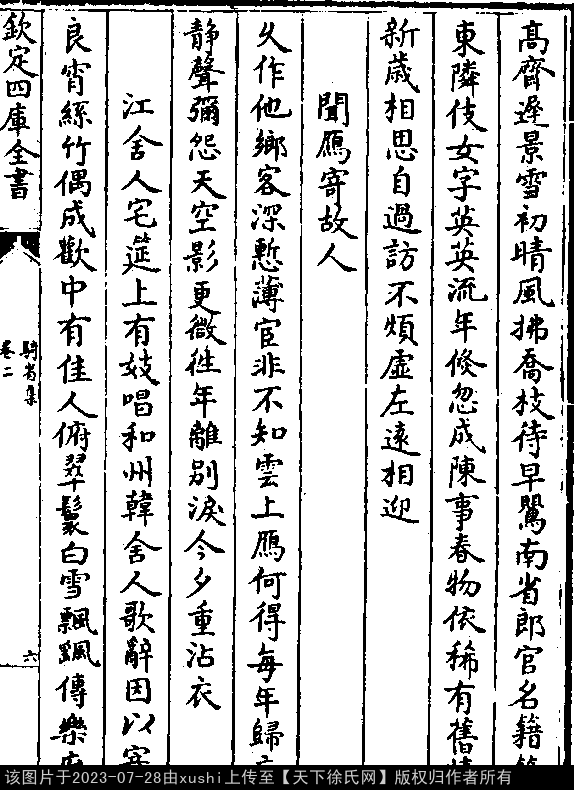 髙齋遲景雪初晴風拂喬枝待早鶯南省郎官名籍籍
東隣伎女字英英流年倐忽成陳事春物依稀有舊情
新歳相思自過訪不煩虚左逺相迎
聞鴈寄故人
乆作他鄉客深慙薄宦非不知雲上鴈何得每年歸
静聲彌怨天空影更微徃年離别淚今夕重沾衣
江舍人宅筵上有妓唱和州韓舍人歌辭因以寄
良宵絲竹偶成歡中有佳人俯翠鬟白雪飄飄傳樂府
欽定四庫全書
騎省集
卷二
六
该图片于2023-07-28由xushi上传至【天下徐氏网】版权归作者所有